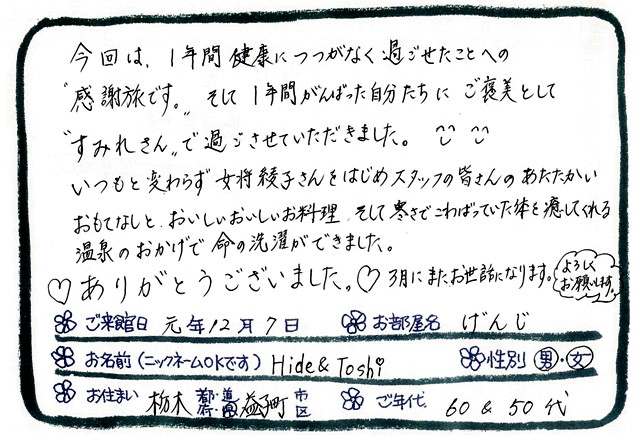 今回は、1年間健康につつがなく過ごせたことへの
"感謝旅です。" そして1年間がんばった自分たちにご褒美として
"すみれさん"で過ごさせていただきました。
いつもと変わらず女将綾子さんをはじめスタッフの皆さんのあたたかい
おもてなしと、おいしいおいしいお料理、そして寒さでこわばっていた体を癒してくれる
温泉のおかげで命の洗濯ができました。
♡ありがとうございました。♡ 3月にまたお世話になります。 よろしく
お願いします。
ご来館日 元年12月7日 お部屋名 げんじ
お名前(ニックネームOKです) Hide & Toshi 性別 男・女
お住まい 栃木 都・道・府・県 益子町 市区 ご年代 60 & 50代